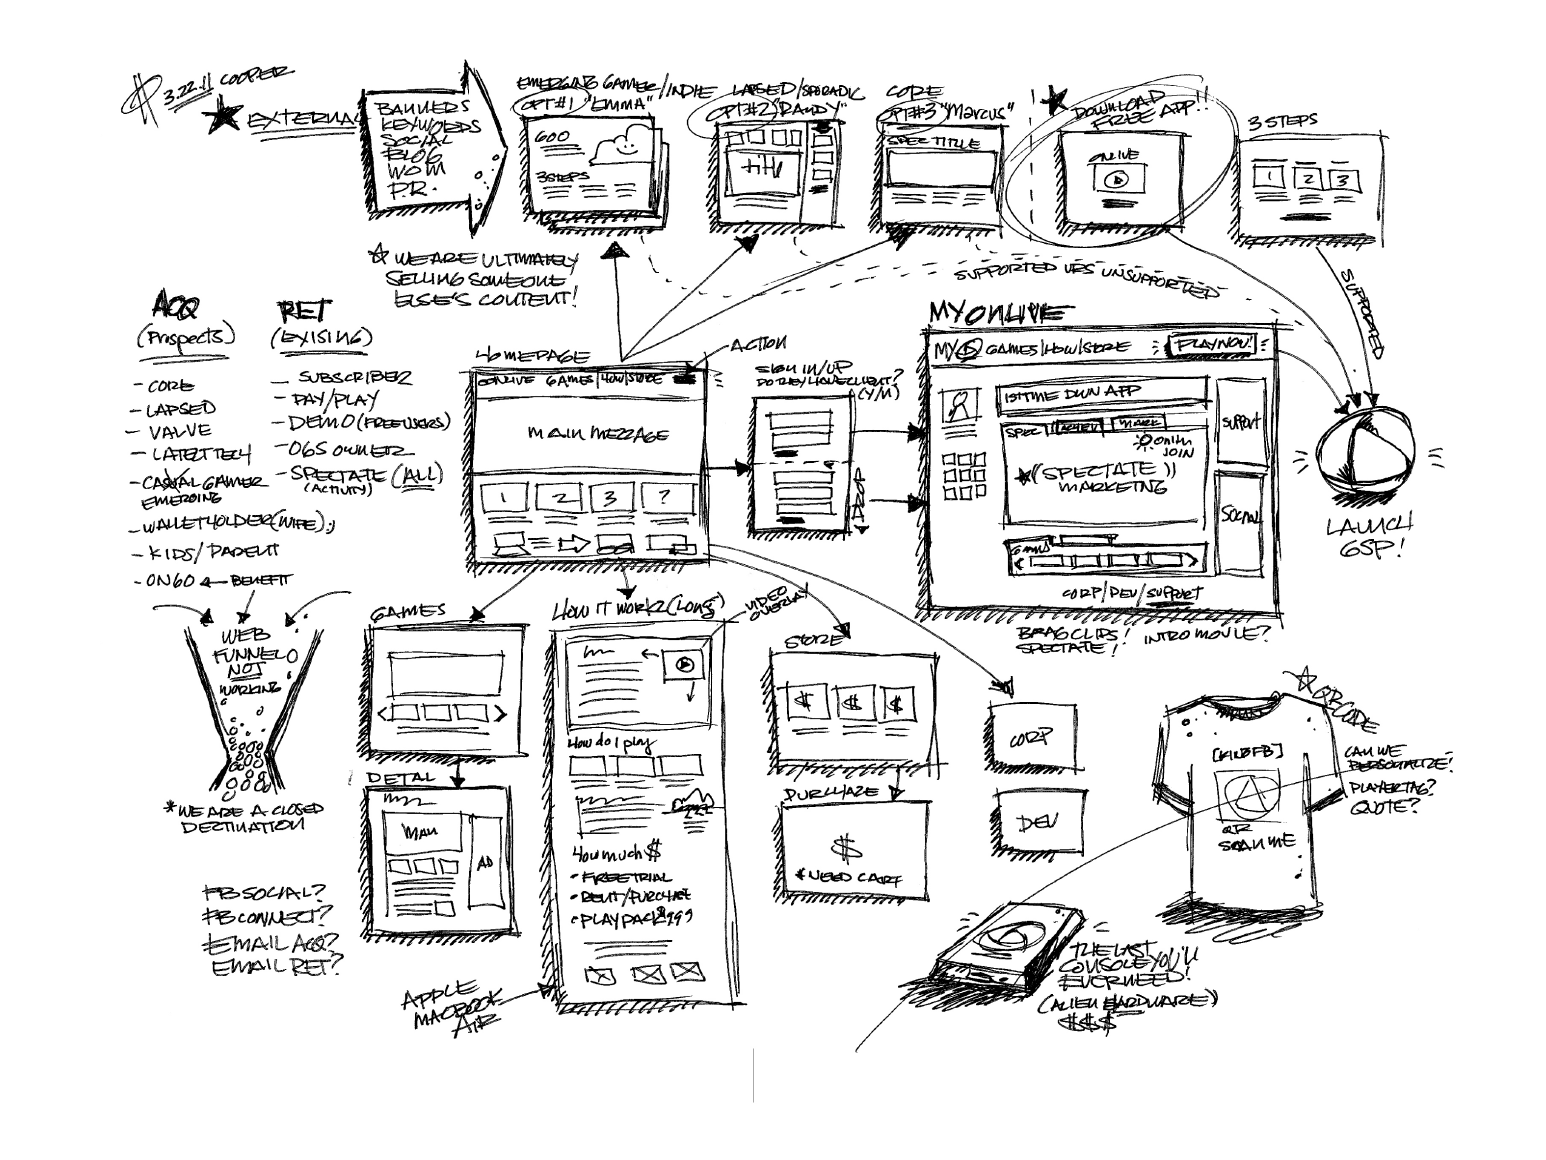 3.22.11 COOPER
★ EXTERNAL
BANNERS
KEYWORDS
SOCIAL
BLOG
WOM
PR.
EMERGING GAMER/INDIE
OPT#1 "EMMA"
600
3 STEPS
LAPSED/SPORADIC
OPT#2 "RANDY"
CORE
OPT#3 "Marcus"
SPEC TITLE
DOWNLOAD
FREE APP!!
ONLIVE
3 STEPS
1 2 3
☆ WE ARE ULTIMATELY
SELLING SOMEONE
ELSE'S CONTENT!
SUPPORTED VRS UNSUPPORTED
SUPPORTED
ACQ
(Prospects)
- CORE
- LAPSED
- VALVE
- LATEST TECH
- CASUAL GAMER
EMERGING
- WALLETHOLDER (WIFE) ;)
- KIDS/PARENT
- ON60 ← BENEFIT
RET
(EXISING)
- SUBSCRIBER
- PAY/PLAY
- DEMO (FREE USERS)
- OGS OWNER
- SPECTATE (ALL)
(ACTIVITY)
HOMEPAGE
ACTION
ONLIVE GAMES/HOW/STORE
MAIN MESSAGE
1 2 3 ?
SIGN IN/UP
DO THEY HAVE CLIENT?
(Y/N)
DROP
MY ONLIVE
MY GAMES/HOW/STORE
PLAY NOW!
1ST TIME DWN APP
SPECT
ONLIN
JOIN
★ ((SPECTATE))
MARKETING
GAMES
SUPPORT
SOCIAL
CORP/DEV/SUPPORT
BRAG CLIPS! INTRO MOVIE?
SPECTATE!
LAUNCH
GSP!
WEB
FUNNEL
NOT
WORKING
* WE ARE A CLOSED
DESTINATION
FB SOCIAL?
FB CONNECT?
EMAIL ACQ?
EMAIL RET?
GAMES
DETAL
MAN
AD
HOW IT WORKZ (LONG)
VIDEO
OVERLAY
How do I play
How much $
• FREE TRIAL
• RENT/PURCHASE
• PLAYPACK $9.99
APPLE
MACBOOK
AIR
STORE
$ $ $
PURCHAZE
$
* NEED CART
CORP
DEV
☆ QR CODE
CAN WE
PERSONALIZE!
PLAYERTAG?
QUOTE?
QR
SCAN ME
THE LAST
CONSOLE YOU'LL
EVER NEED!
(ALIEN HARDWARE)
$$$